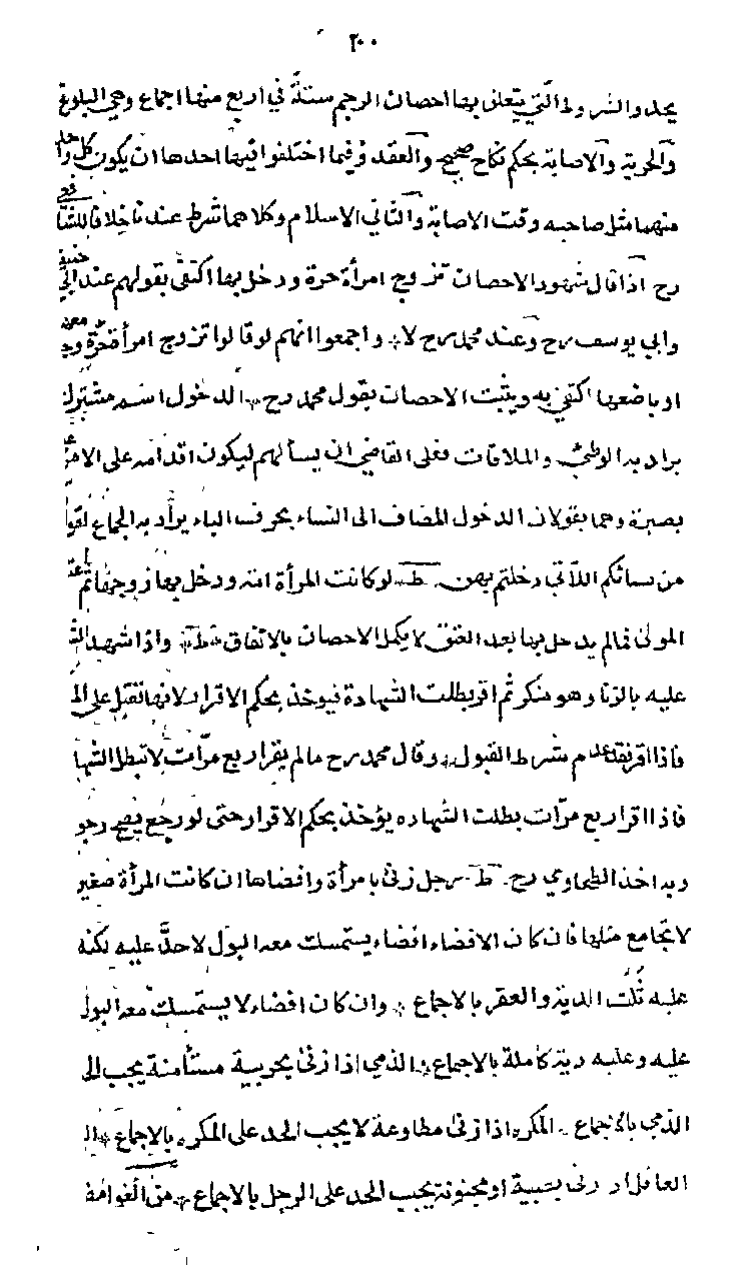 ٢٠٠
يحد والشروط التي يتعلق بها احصان الرجم ستة في اربع منها اجماع وهي البلوغ
والحرية والاصابة بحكم نكاح صحيح والعقد وفيما اختلفوا فيها احدها ان يكون كل واحد
منهما مثل صاحبه وقت الاصابة والثاني الاسلام وكلاهما شرط عندنا خلافا للشافعي
رح اذا قال شهود الاحصان تزوج امرأة حرة ودخل بها اكتفى بقولهم عند ابي حنيفة
وابي يوسف رح وعند محمد رح لا * واجمعوا انهم لو قالوا تزوج امرأة حرة وجامعها
او باضعها اكتفي به ويثبت الاحصان بقول محمد رح * الدخول اسم مشترك
يراد به الوطئ والملاقات فعلى القاضي ان يسألهم ليكون اقدامه على الامر عن
بصيرة وهما يقولان الدخول المضاف الى النساء بحرف الباء يراد به الجماع لقو
من نسائكم اللاتي دخلتم بهن ط لو كانت المرأة امة ودخل بها زوجها ثم اعتقها
المولى فما لم يدخل بها بعد العتق لا يكمل الاحصان بالاتفاق * ط * واذا شهد الش
عليه بالزنا وهو منكر ثم اقر بطلت الشهادة فيوخذ بحكم الاقرار لانها تقبل على الم
فاذا اقر فقد عدم شرط القبول * وقال محمد رح ما لم يقر اربع مرات لا تبطل الشها
فاذا اقر اربع مرات بطلت الشهاده يؤخذ بحكم الاقرار حتى لو رجع يصح رجو
وبه اخذ الطحاوي رح ط رجل زنى بامرأة وافضاها ان كانت المرأة صغير
لا تجامع مثلها فان كان الافضاء افضاء يستمسك معه البول لا حد عليه لكنه
عليه ثلث الدية والعقر بالاجماع * وان كان افضاء لا يستمسك معه البول
عليه وعليه دية كاملة بالاجماع * الذمي اذا زنى بحربية مستأمنة يجب الح
الذمي بالاجماع * المكره اذا زنى مطاوعة لا يجب الحد على المكره بالاجماع * ال
العاقل اذ زنى بصبية او مجنونة يجب الحد على الرجل بالاجماع * من الغوامض